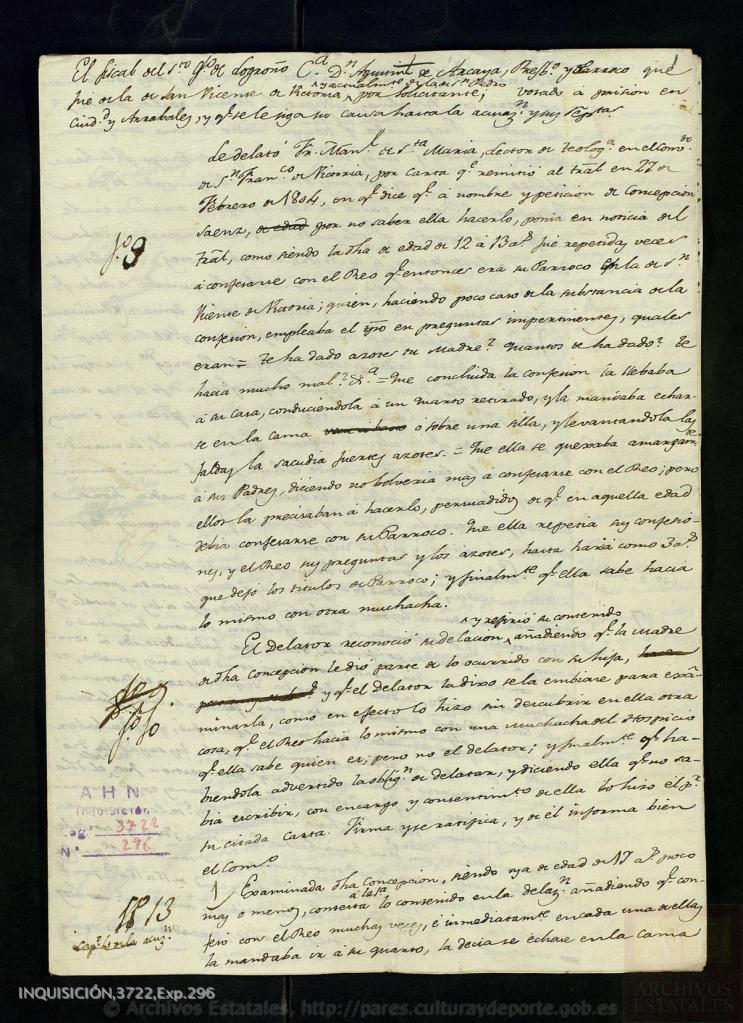 El fiscal del S.to Of.o de Logroño C.a D.n Agustin de Arcaya, Presb.o y Parroco que
fue de la de San Vicente de Victoria ^ y actualm.te de la de S.n Pedro por solicitante, votado à prision en
Ciud.d y Arrabales, y q.e se le siga su causa hasta la acus.n
Le delató Fr. Man.l de S.ta Maria, Lector de Teolog.a en el Com.to
de S.n Fran.co de Victoria, por carta q.e remitió al tral en 27 de
Febrero de 1804, en q.e dice q.e à nombre y peticion de Concepcion
Saenz, de edad por no saber ella hacerlo, ponia en noticia del
fo. 9
tral, como siendo la dha de edad de 12 à 13 a.s fué repetidas veces
à confesarse con el Reo q.e entonces era su Parroco en la de S.n
Vicente de Victoria; quien, haciendo poco caso de la substancia de la
confesion, empleaba el tpo en preguntas impertinentes, quales
eran = te ha dado azotes tu Madre? quantos te ha dado? te
hacia mucho mal? &.a = Que concluida la confesion la llebaba
à su casa, conduciendola à un quarto retirado, y la mandaba echar-
se en la cama o sobre una silla, y levantandola las
faldas la sacudia fuertes azotes. = Que ella se quexaba amargam.te
à sus Padres, diciendo no bolveria mas à confesarse con el Reo; pero
ellos la precisaban à hacerlo, persuadidos de q.e en aquella edad
debia confesarse con su Parroco. Que ella repetia sus confesio-
nes, y el Reo sus preguntas y los azotes, hasta haria como 3 a.s
que dejo los titulos de Parroco; y finalm.te q.e ella sabe hacia
lo mismo con otra muchacha.
El Delator reconoció su delacion ^ y refirió su contenido añadiendo q.e la Madre
de dha Concepcion le dió parte de lo ocurrido con su hija,
y q.e el delator la dixo se la embiase para exâ-
fo. 10
minarla, como en efecto lo hizo sin descubrir en ella otra
cosa, q.e el Reo hacia lo mismo con una muchacha del Hospicio
q.e ella sabe quien es; pero no el delator; y finalm.te q.e ha-
biendola advertido la oblig.n de delatar, y diciendo ella q.e no sa-
bia escribir, con encargo y consentim.to de ella lo hizo el p.r
su citada carta. Firma y se ratifica, y de él informa bien
el Com.o
A H N
Inquisición
Leg.o 3722
N.o 296
1 Examinada dha Concepcion, siendo ya de edad de 17 a.s poco
mas o menos, contesta ^ à la la lo contenido en la delaz.n añadiendo q.e con-
fo. 13
Cap.o 1.o de la acus.n
fesó con el Reo muchas veces, è inmediatam.te en cada una de ellas
la mandaba ir à su quarto, la decia se echase en la cama
INQUISICIÓN,3722,Exp.296
© Archivos Estatales, http://pares.culturaydeporte.gob.es
ARCHIVOS
ESTATALES